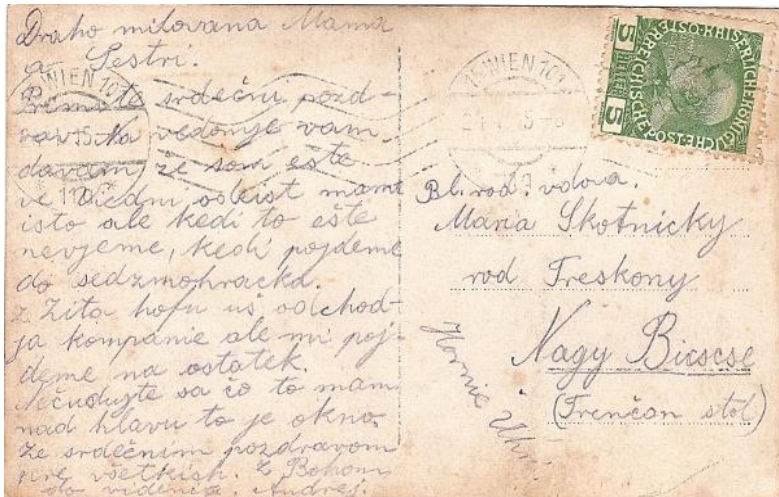 Draho milovana Mama
a Sestri.
Primite srdečni pozd-
rav. Na vedomje vam
davam že som ešte
ve Viedni, odeist mame
isto ale kedi to ešte
nevjeme, kedi pojdeme
do sedzmohracka.
z Zita hofu uš odchod-
ja kompanie ale mi poj-
deme na ostatek.
Nečudujte sa čo to mam
nad hlavu to je okno.
Ze srdečnim pozdravom
pre všetkich. Z Bohom
do videnia. Andrej.
WIEN 101
WIEN 101
KAISERLICH KÖNIGLICHE
ÖSTERREICHISCHE POST
5 HELLER 5
Bl. rod. vdova.
Maria Skotnicky
rod Treskony
Nagy Bicscse
(Trenčan stol)
Hornie Uhri